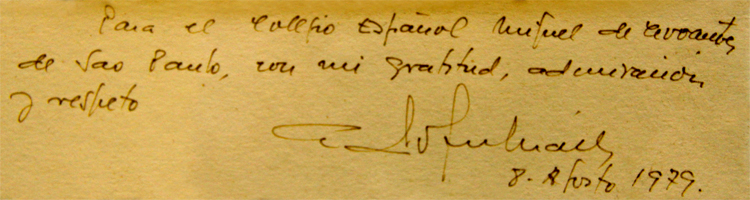 Para el Colegio Español Miguel de Cervantes
de Sao Paulo, con mi gratitud, admiración
y respeto
8. Agosto 1979.